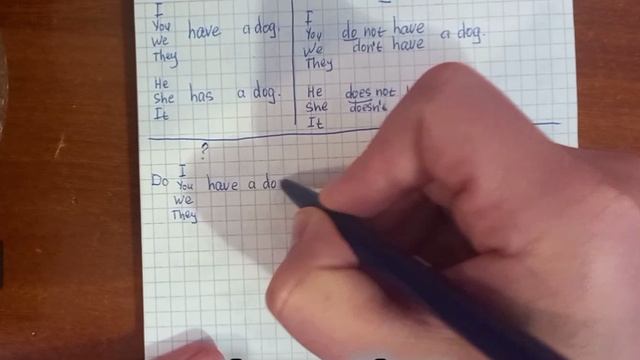 I
You
We
They
have a dog.
He
She
It
has a dog.
I
You
We
They
do not have
don't have
a dog.
He
She
It
does not
doesn't
?
Do
I
You
We
They
have a do